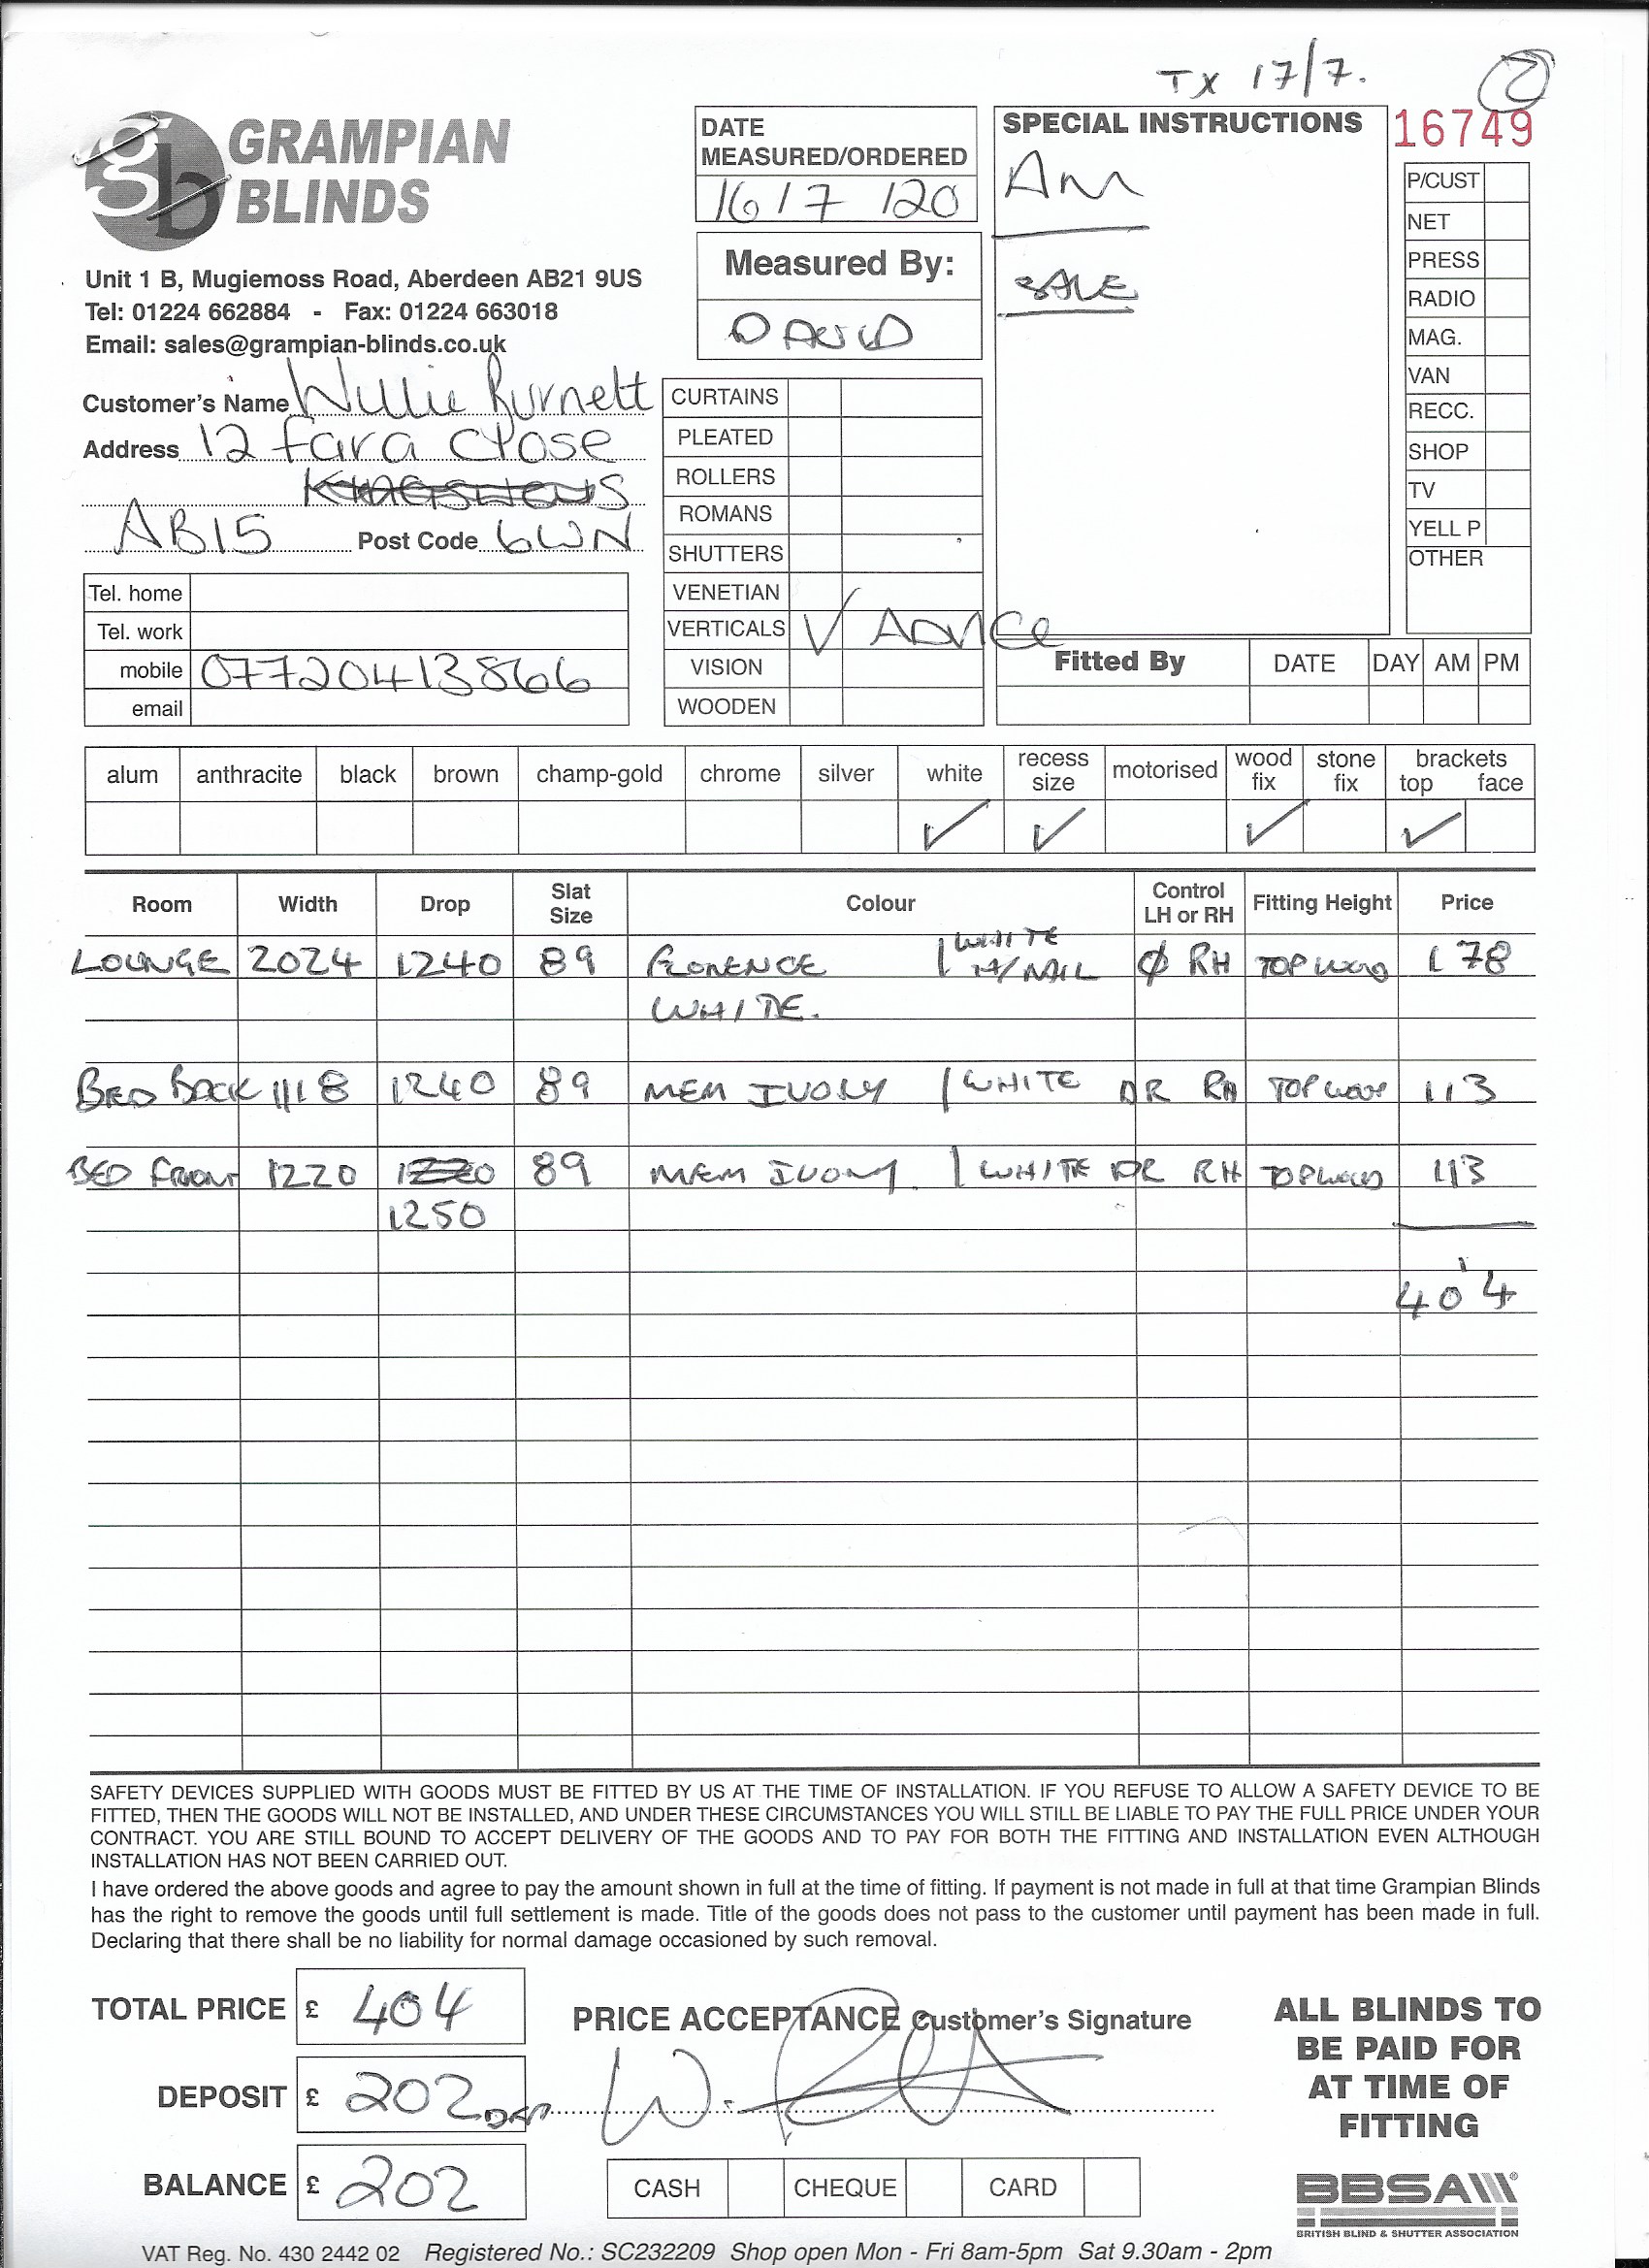 TX 17/7.
2
GRAMPIAN
BLINDS
Unit 1 B, Mugiemoss Road, Aberdeen AB21 9US
Tel: 01224 662884 - Fax: 01224 663018
Email: sales@grampian-blinds.co.uk
Customer's Name Willie Burnett
Address 12 Fara Close
AB15 Post Code 6WN
Tel. home
Tel. work
mobile 07720413866
email
DATE
MEASURED/ORDERED
16/7/20
Measured By:
DAVID
CURTAINS
PLEATED
ROLLERS
ROMANS
SHUTTERS
VENETIAN
VERTICALS ✓ ADVICE
VISION
WOODEN
SPECIAL INSTRUCTIONS
AM
SALE
16749
P/CUST
NET
PRESS
RADIO
MAG.
VAN
RECC.
SHOP
TV
YELL P
OTHER
Fitted By DATE DAY AM PM
alum anthracite black brown champ-gold chrome silver white recess size motorised wood fix stone fix brackets top face
✓ ✓ ✓ ✓
Room Width Drop Slat Size Colour Control LH or RH Fitting Height Price
LOUNGE 2024 1240 89 FLORENCE / WHITE RH TOP WOOD 178
WHITE.
BED BACK 1118 1240 89 MEM IVORY / WHITE DR RH TOP WOOD 113
BED FRONT 1220 89 MEM IVORY / WHITE DR RH TOP WOOD 113
1250
404
SAFETY DEVICES SUPPLIED WITH GOODS MUST BE FITTED BY US AT THE TIME OF INSTALLATION. IF YOU REFUSE TO ALLOW A SAFETY DEVICE TO BE
FITTED, THEN THE GOODS WILL NOT BE INSTALLED, AND UNDER THESE CIRCUMSTANCES YOU WILL STILL BE LIABLE TO PAY THE FULL PRICE UNDER YOUR
CONTRACT. YOU ARE STILL BOUND TO ACCEPT DELIVERY OF THE GOODS AND TO PAY FOR BOTH THE FITTING AND INSTALLATION EVEN ALTHOUGH
INSTALLATION HAS NOT BEEN CARRIED OUT.
I have ordered the above goods and agree to pay the amount shown in full at the time of fitting. If payment is not made in full at that time Grampian Blinds
has the right to remove the goods until full settlement is made. Title of the goods does not pass to the customer until payment has been made in full.
Declaring that there shall be no liability for normal damage occasioned by such removal.
TOTAL PRICE £ 404
DEPOSIT £ 202
BALANCE £ 202
PRICE ACCEPTANCE Customer's Signature
CASH CHEQUE CARD
ALL BLINDS TO
BE PAID FOR
AT TIME OF
FITTING
BBSA
BRITISH BLIND & SHUTTER ASSOCIATION
VAT Reg. No. 430 2442 02 Registered No.: SC232209 Shop open Mon - Fri 8am-5pm Sat 9.30am - 2pm